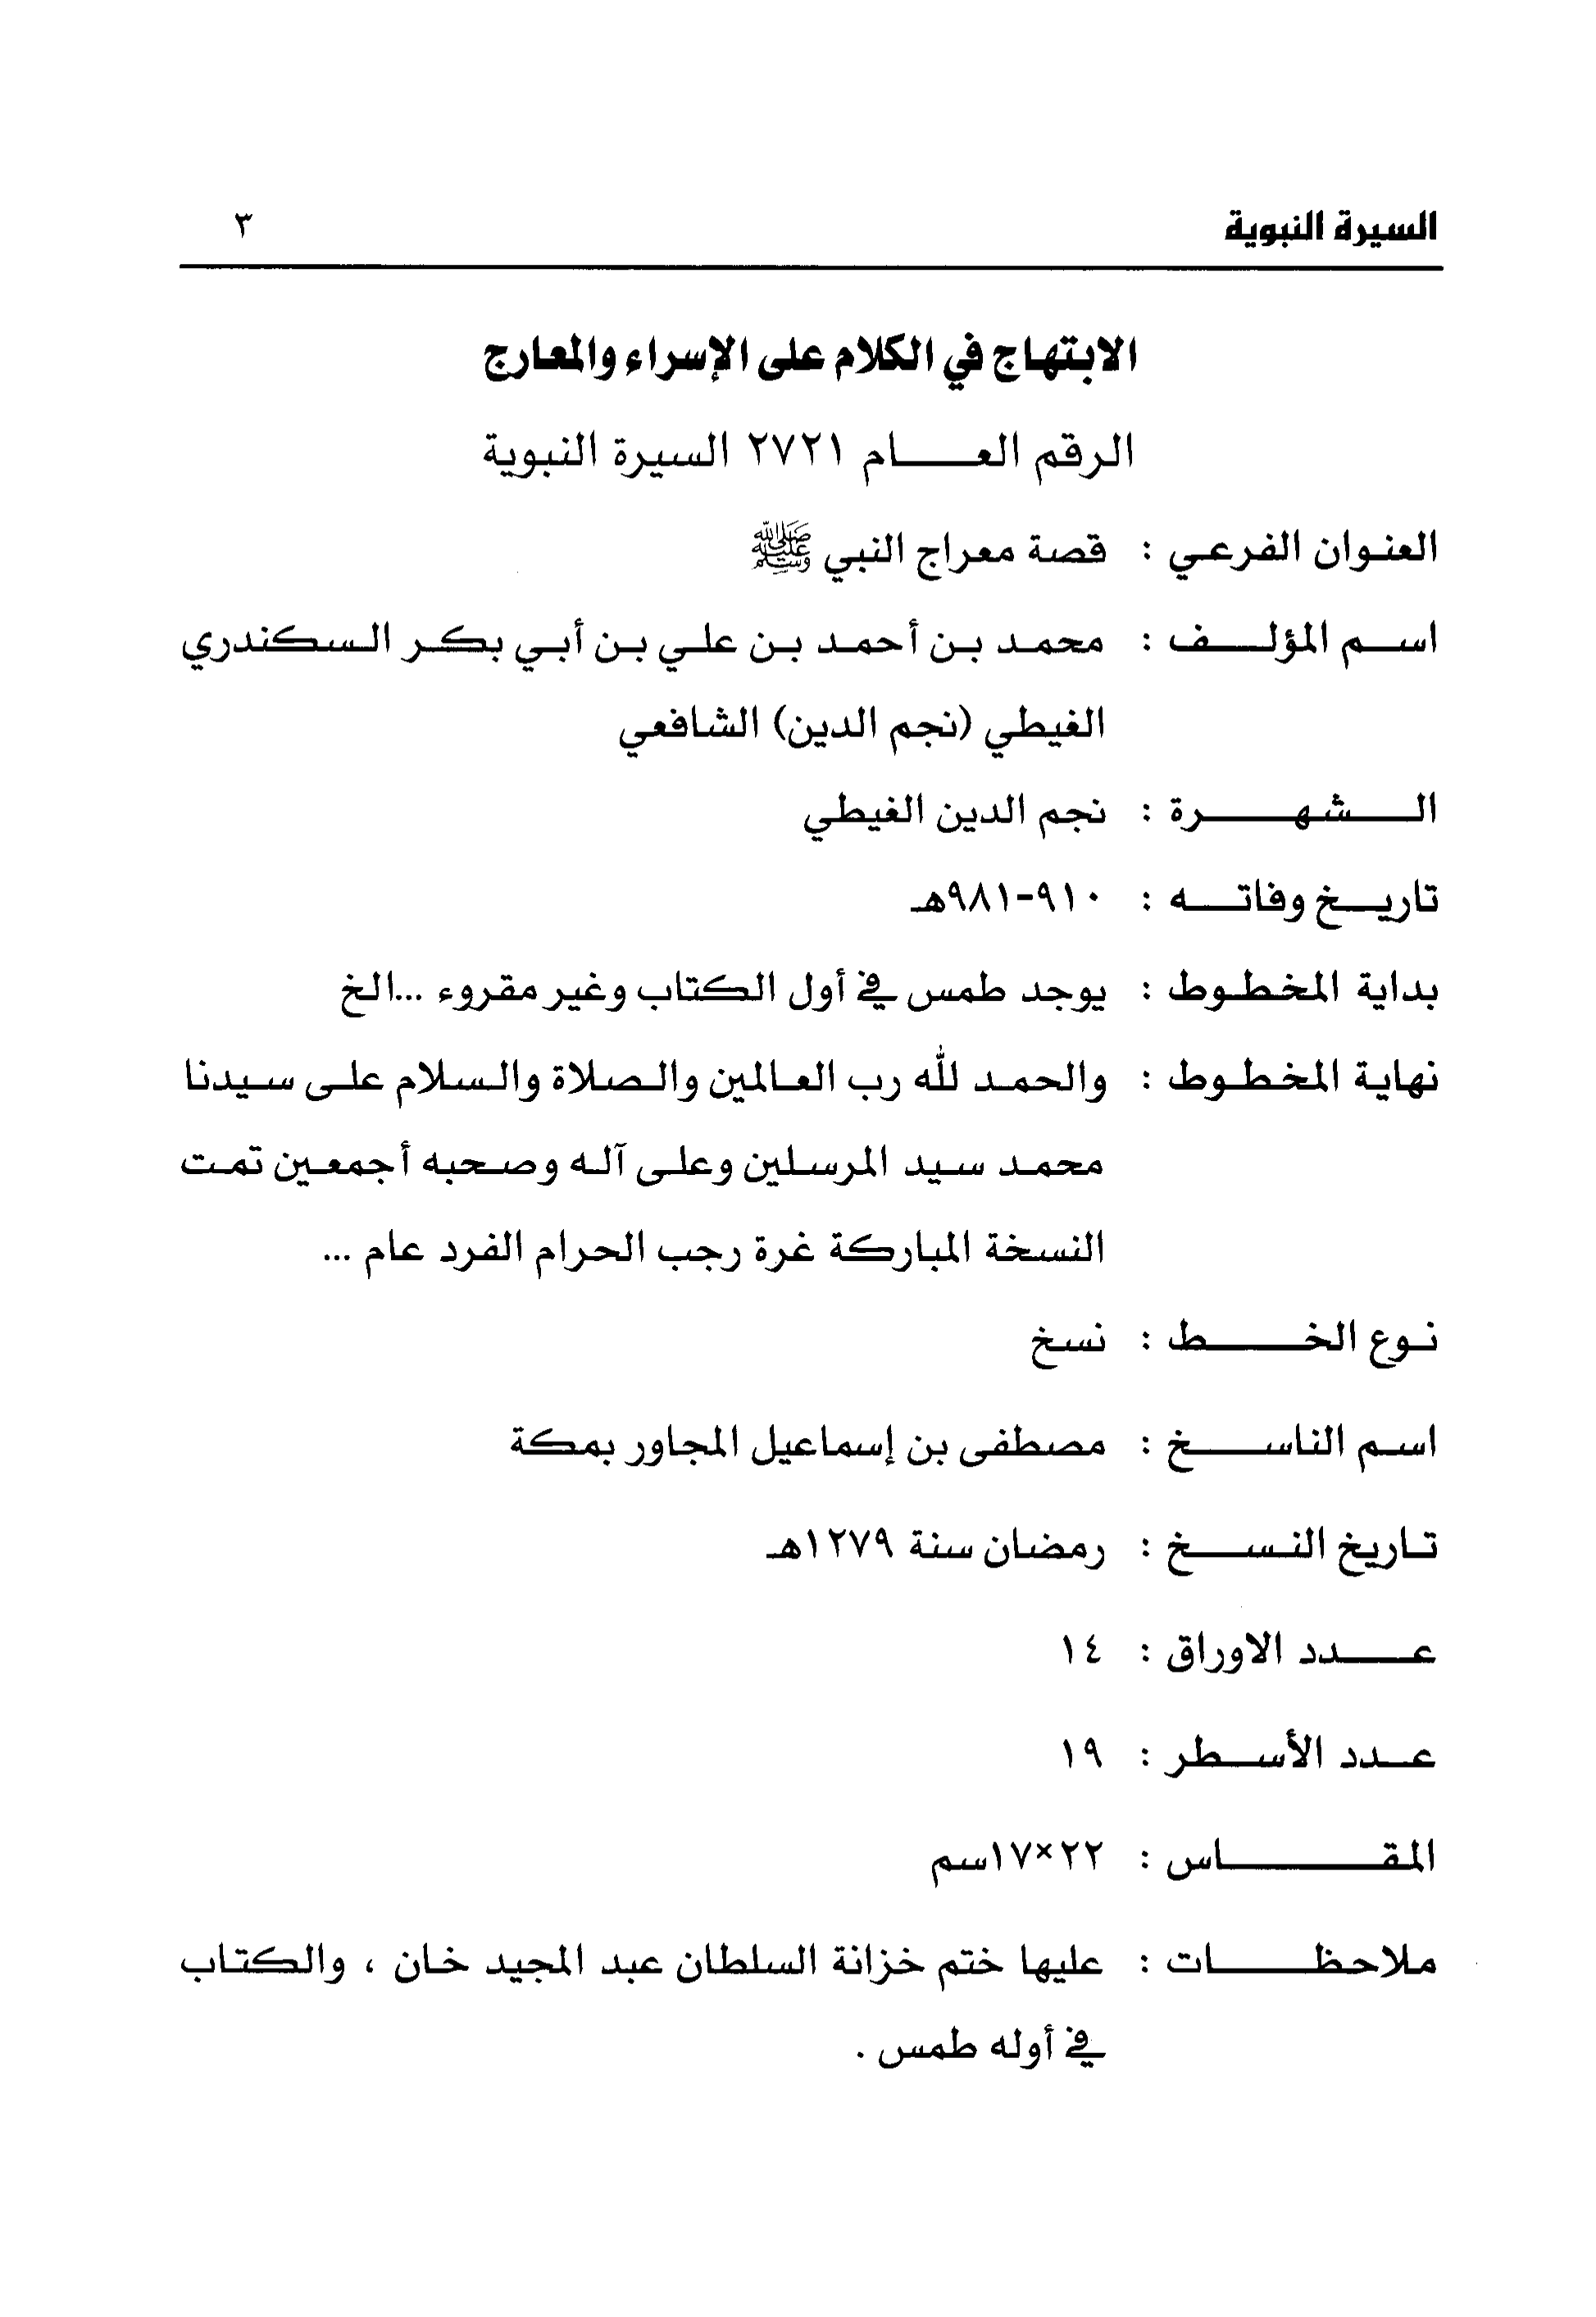 السيرة النبوية ٣
الابتهاج في الكلام على الإسراء والمعارج
الرقم العـــام ٢٧٢١ السيرة النبوية
العنوان الفرعي : قصة معراج النبي ﷺ
اسم المؤلف : محمد بن أحمد بن علي بن أبي بكر السكندري
الغيطي (نجم الدين) الشافعي
الشهرة : نجم الدين الغيطي
تاريخ وفاته : ٩١٠-٩٨١هـ
بداية المخطوط : يوجد طمس في أول الكتاب وغير مقروء ...الخ
نهاية المخطوط : والحمد لله رب العالمين والصلاة والسلام على سيدنا
محمد سيد المرسلين وعلى آله وصحبه أجمعين تمت
النسخة المباركة غرة رجب الحرام الفرد عام ...
نوع الخط : نسخ
اسم الناسخ : مصطفى بن إسماعيل المجاور بمكة
تاريخ النسخ : رمضان سنة ١٢٧٩هـ
عدد الاوراق : ١٤
عدد الأسطر : ١٩
المقاس : ٢٢×١٧سم
ملاحظات : عليها ختم خزانة السلطان عبد المجيد خان ، والكتاب
في أوله طمس .